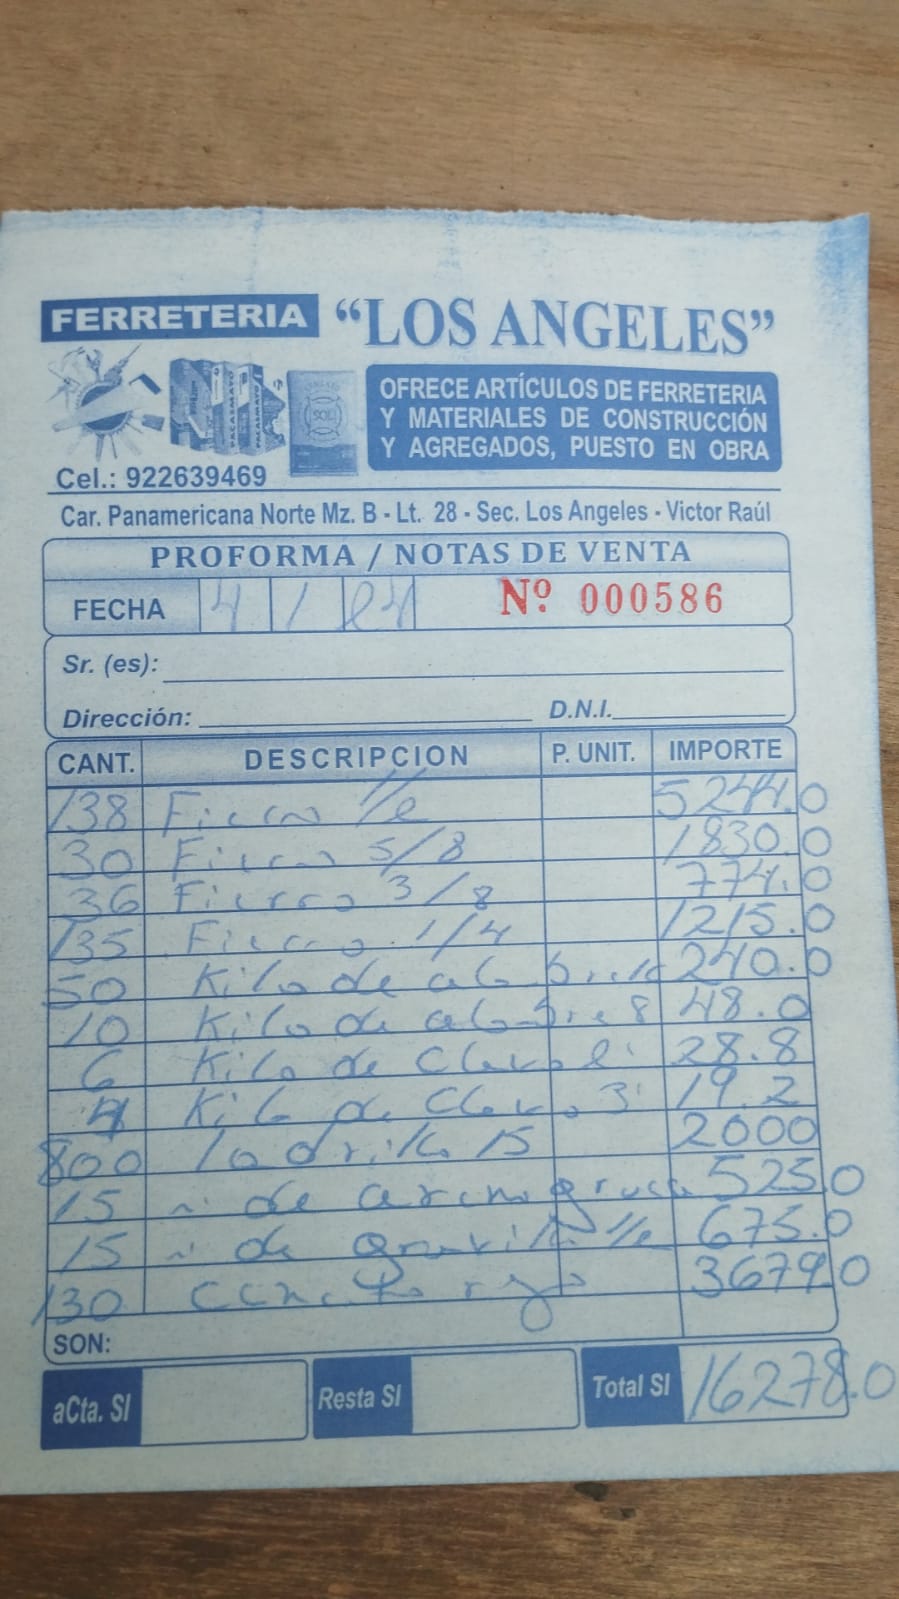 FERRETERIA "LOS ANGELES"
OFRECE ARTÍCULOS DE FERRETERIA
Y MATERIALES DE CONSTRUCCIÓN
Y AGREGADOS, PUESTO EN OBRA
Cel.: 922639469
Car. Panamericana Norte Mz. B - Lt. 28 - Sec. Los Angeles - Victor Raúl
PROFORMA / NOTAS DE VENTA
FECHA 4 1 24 Nº. 000586
Sr. (es):
Dirección: D.N.I.
CANT. DESCRIPCION P. UNIT. IMPORTE
138 Fierro 1/2 5244.0
30 Fierro 5/8 1830.0
36 Fierro 3/8 774.0
135 Fierro 1/4 1215.0
50 Kilo de 240.0
10 Kilo de 8 48.0
6 Kilo de Clavo 28.8
4 Kilo de Clavo 3" 19.2
800 ladrillo 15 2000
15 de arena gruesa 525.0
15 de gravilla 1/2 675.0
130 rojo 3679.0
SON:
aCta. S/ Resta S/ Total S/ 16278.0